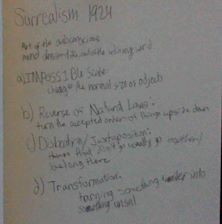 Surrealism 1924
Art of the subconscious
mind
a) Impossible Scale:
change the normal size of objects
b) Reverse of Natural Laws:
turn the accepted order of things upside down
c) Juxtaposition:
things that don't usually go together/
belong there
d) Transformation:
something into
something